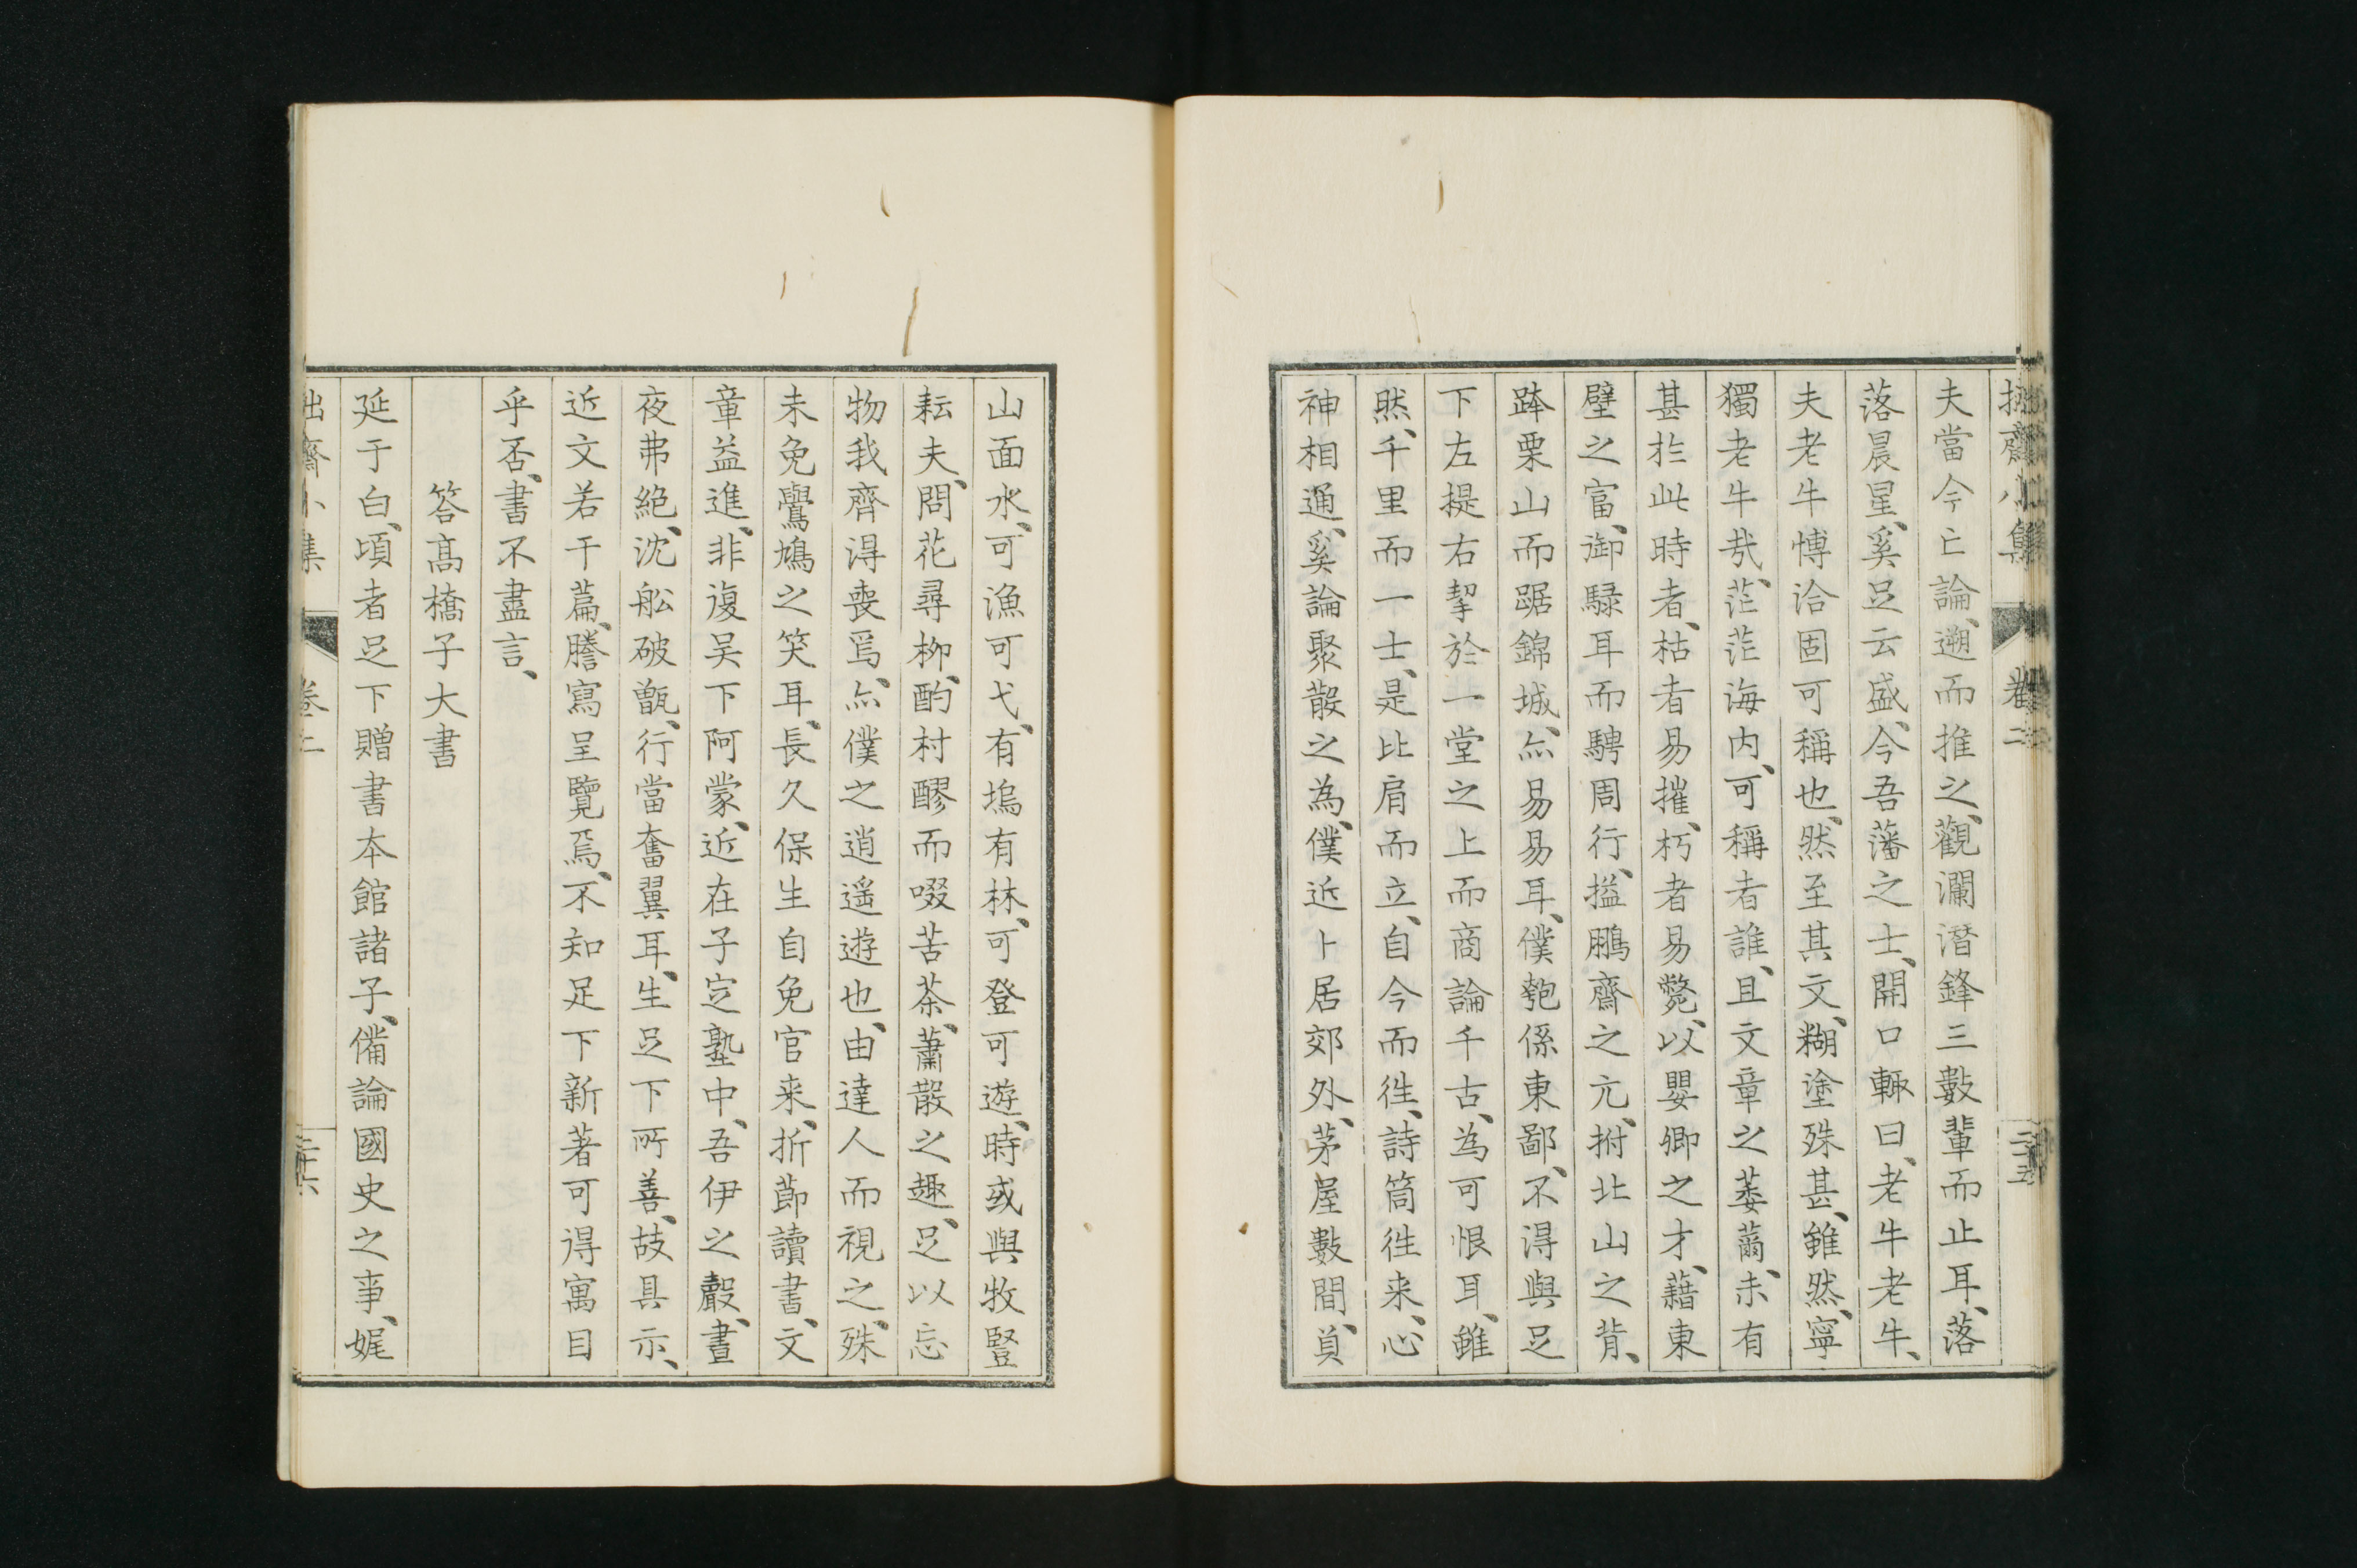 拙齋小集 卷二 二十五
夫當今亡論、遡而推之、觀瀾潛鋒三數輩而止耳、落
落晨星、奚足云盛、今吾藩之士、開口輙曰、老牛老牛、
夫老牛博洽固可稱也、然至其文、糊塗殊甚、雖然、寧
獨老牛㢤、茫茫海内、可稱者誰、且文章之萎薾、未有
甚於此時者、枯者易摧、朽者易斃、以嬰卿之才、藉東
壁之富、御騄耳而騁周行、搤鵬齋之亢、拊北山之背、
踤栗山而踞錦城、亦易易耳、僕匏係東鄙、不得與足
下左提右挈於一堂之上而商論千古、為可恨耳、雖
然、千里而一士、是比肩而立、自今而徃、詩筒徃来、心
神相通、奚論聚散之為、僕近卜居郊外、茅屋數間、負
山面水、可漁可弋、有塢有林、可登可遊、時或與牧豎
耘夫、問花尋柳、酌村醪而啜苦茶、蕭散之趣、足以忘
物我齊得喪焉、亦僕之逍遥遊也、由達人而視之、殊
未免鷽鳩之笑耳、長久保生自免官来、折節讀書、文
章益進、非復吴下阿蒙、近在子定塾中、吾伊之聲、晝
夜弗絶、沈舩破甑、行當奮翼耳、生足下所善、故具示、
近文若干篇、謄寫呈覽焉、不知足下新著可得寓目
乎否、書不盡言、
答高橋子大書
延于白、頃者足下贈書本館諸子、備論國史之事、娓
拙齋小集 卷二 二十六